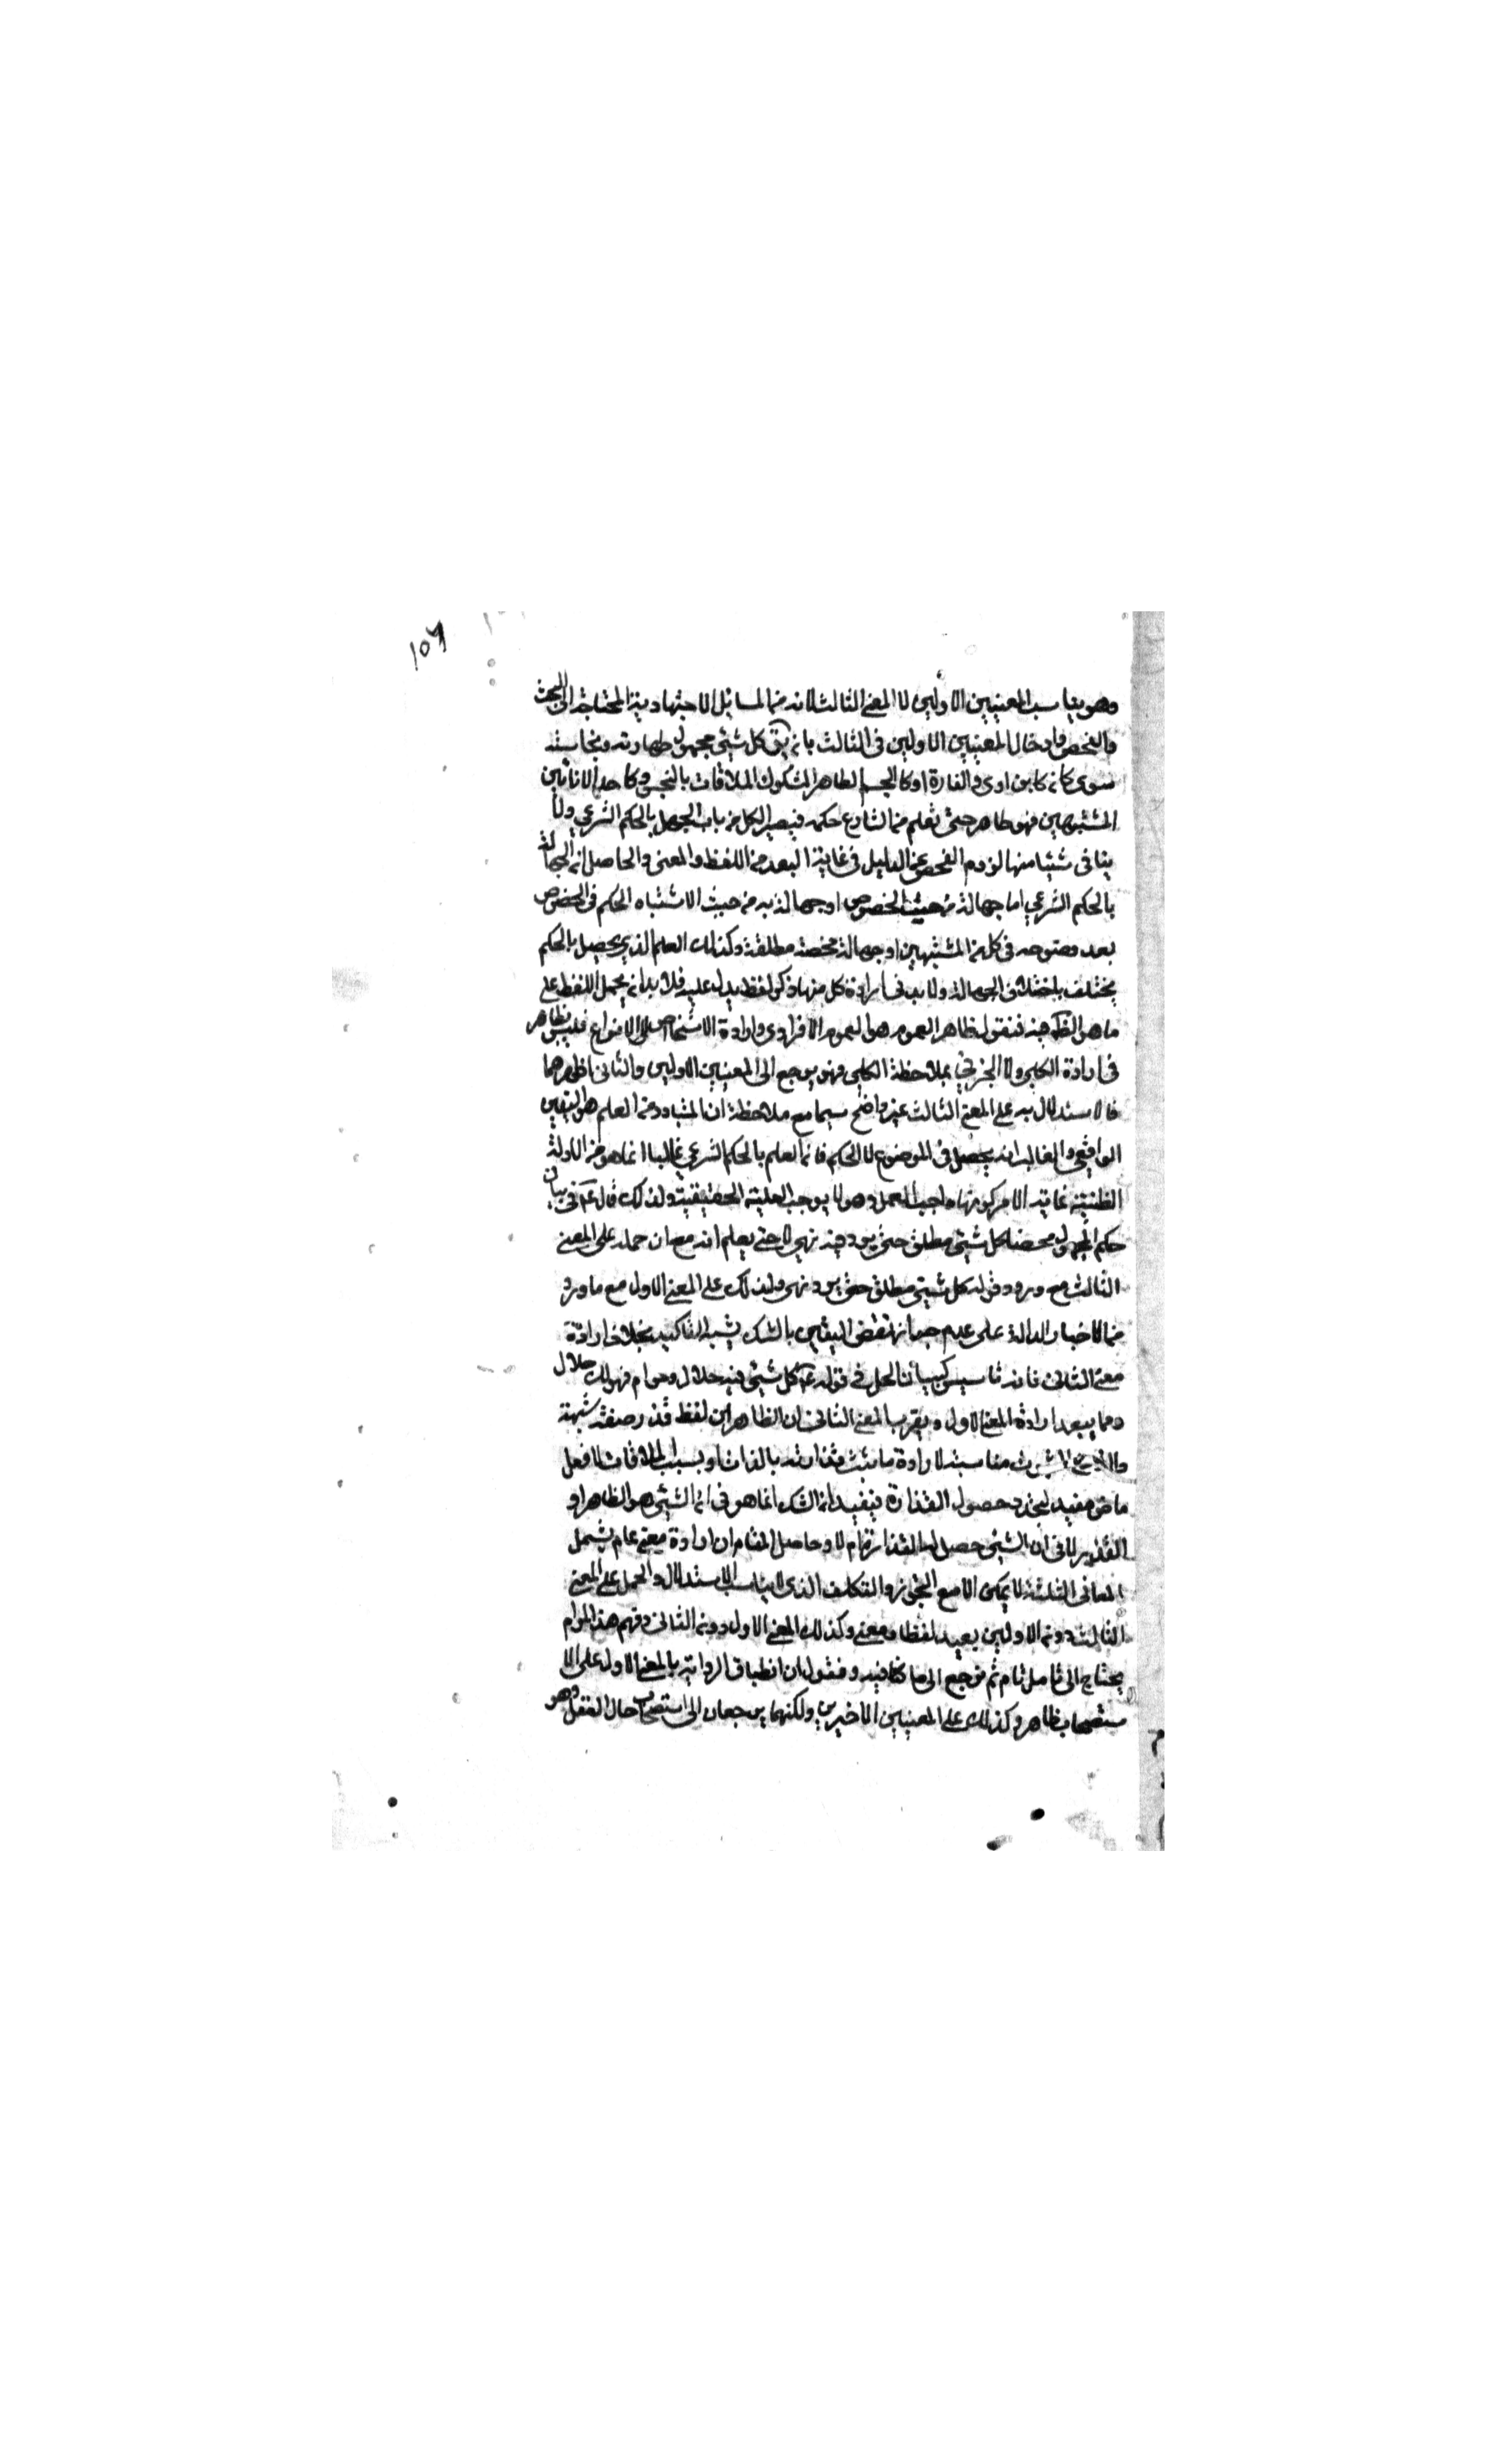 ١٥٦
وهو يناسب المعنيين الاولين لا المعنى الثالث لانه من المسائل الاجتهادية المحتاجة الى البحث
والفحص وادخال المعنيين الاولين فى الثالث بان يق كل شيئ مجهول طهارته ونجاسته
سوى كان كابن اوى والفارة او كالجسم الطاهر المشكوك الملاقات بالنجس وكاحد الانائين
المشتبهين فهو طاهر حتى تعلم من الشارع حكمه فيصير الكل من باب الجهل بالحكم الشرعي ولا
ينافى شيئا منها لزوم الفحص عن الدليل فى غاية البعد من اللفظ والمعنى والحاصل ان الجهالة
بالحكم الشرعي اما جهالة من حيث الخصوص او جهالة به من حيث الاشتباه الحكم فى الخصوص
بعد وضوحه فى كل من المشتبهين او جهالة محضة مطلقة وكذلك العلم الذي يحصل بالحكم
يختلف باختلاف الجهالة ولا بد فى ارادة كل منها ذكر لفظ يدل عليه فلا بد ان يحمل اللفظ على
ما هو الظ منه فنقول ظاهر العموم هو العموم الافرادى وارادة الاشخاص الى الانواع فليس بظاهر
فى ارادة الكلي ولا الجزئي بملاحظة الكلي فهو يرجع الى المعنيين الاولين والثانى اظهرهما
فالاستدلال به على المعنى الثالث غير واضح سيما مع ملاحظة ان المتبادر من العلم هو اليقين
الواقعي والغالب انه يحصل فى الموضوع لا الحكم فان العلم بالحكم الشرعي غالبا انما هو من الادلة
الظنية غاية الامر كونها واجب العمل وهو لا يوجب العلمية الحقيقية ولذلك قال ع فى بيان
حكم المجهول محضا كل شيئ مطلق حتى يرد فيه نهي لا حتى يعلم انه مع ان حمله على المعنى
الثالث مع ورود قوله كل شيئ مطلق حتى يرد نهى وكذلك على المعنى الاول مع ما ورد
من الاخبار الدالة على عدم جواز نقض اليقين بالشك يشبه التاكيد بخلاف ارادة
معنى الثانى فانه تاسيس كبيان الحل فى قوله ع كل شيئ فيه حلال وحرام فهو لك حلال
ومما يبعد ارادة المعنى الاول ويقرب المعنى الثانى ان الظاهر ان لفظ قذر صفة شبهة
مناسبة لارادة ما ثبت قذارته بالذات او بسبب الملاقات لا فعل
ماض مفيد لتجدد حصول القذارة فيفيد ان الشك انما هو فى ان الشيئ هو الطاهر او
القذر لا فى ان الشيئ حصل له القذارة ام لا وحاصل المقام ان ارادة معنى عام يشمل
المعانى الثلثة لا يمكن الا مع التجوز والتكلف الذى لا يناسب الاستدلال والحمل على المعنى
الثالث دون الاولين بعيد لفظا ومعنى وكذلك المعنى الاول دون الثانى وفهم هذا المرام
يحتاج الى تامل تام ثم نرجع الى ما كنا فيه ونقول ان انطباق الرواية بالمعنى الاول على الا
ستصحاب ظاهر وكذلك على المعنيين الاخيرين ولكنهما يرجعان الى استصحاب حال العقل وهو